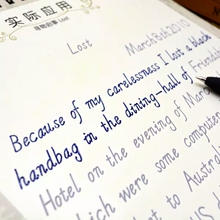 实际应用
Lost
March 3rd, 2010
Because of my carelessness I lost a black
handbag in the dining-hall of Friend
Hotel on the evening of Mar
which were some computer
to Austral